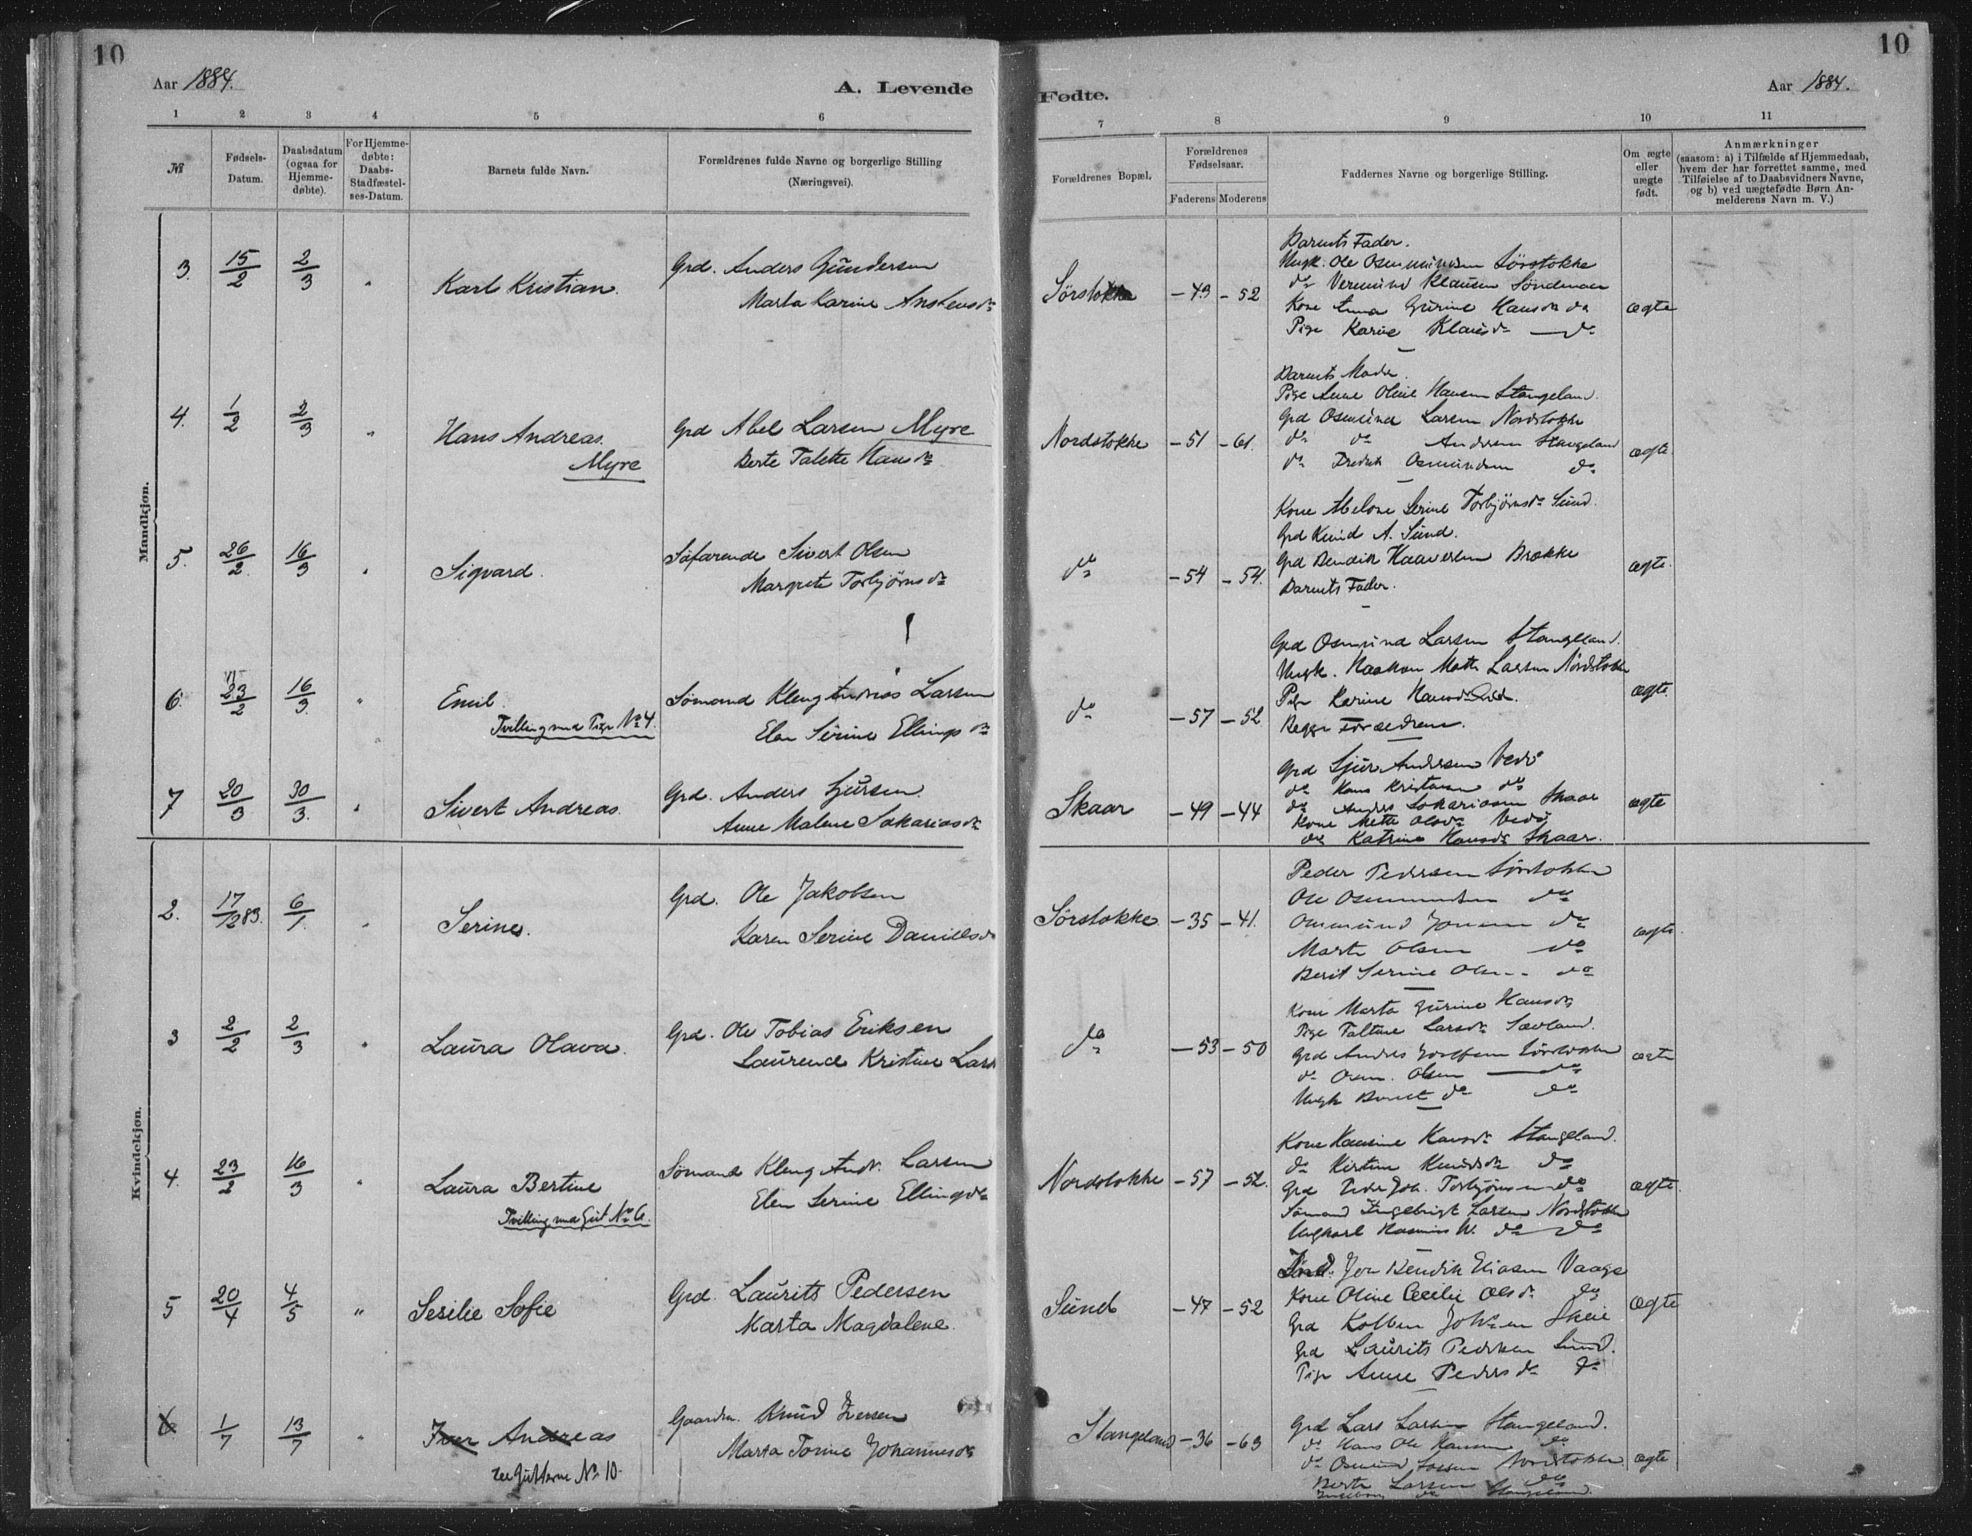 10
Aar 1884.
A. Levende
1 2 3 4 5 6
№
Fødsels-Datum.
Daabsdatum (ogsaa for Hjemme-døbte).
For Hjemme-døbte: Daabs-Stadfæstel-ses-Datum.
Barnets fulde Navn.
Forældrenes fulde Navne og borgerlige Stilling
(Næringsvei).
Mandkjøn.
3. 15/2 2/3 " Karl Kristian. Grd. Anders Gundersen
Marta Karine
4. 1/2 2/3 " Hans Andreas. Grd Abel Larsen Myre
Myre Berte Talette Hansdr
5. 26/2 16/3 " Sigvard. Søfarende Sivert Olsen
Margrete Torbjørnsdr
6. 23/2 16/3 " Emil. Sømand Kleng Andreas Larsen
Tvilling med Pige No 4. Elen Serine Ellingsdr
7 20/3 30/3. " Sivert Andreas. Grd. Anders
Anne Malene Sakariasdr
Kvindekjøn.
2. 17/12 83. 6/1. " Serine. Grd. Ole Jakobsen
Karen Serine Danielsdr
3 2/2 2/3 " Laura Olava. Grd. Ole Tobias Eriksen
Laurence Kristine Lars
4. 23/2 16/3 " Laura Bertine Sømand Kleng Andr. Larsen
Tvilling med Gut No 6. Elen Serine Ellingsdr
5 20/4 4/5 " Sesilie Sofie Grd. Laurits Pedersen
Marta Magdalene.
6 1/7 13/7 " Iver Andreas Gaardm. Knud Iversen
see Guttene No 10. Marta Torine Johannesdr
10
Fødte.
Aar 1884.
7 8 9 10 11
Forældrenes Bopæl.
Forældrenes Fødselsaar.
Faderens Moderens
Faddernes Navne og borgerlige Stilling.
Om ægte eller uægte født.
Anmærkninger
(saasom: a) i Tilfælde af Hjemmedaab,
hvem der har forrettet samme, med
Tilføielse af to Daabsvidners Navne,
og b) ved uægtefødte Børn An-
melderens Navn m. V.)
Barnets Fader.
Ungk. Ole Osmundsen Sørstokke
do Vermund Klausen
Sørstokke -49 -52 Kone Anna Gurine Hansdr do ægte
Pige Karine Klausdr — do
Barnets Moder.
Pige Anne Oline Hansen Stangeland.
Grd Osmund Larsen Nordstokke
Nordstokke -51 -61. do do Andersen Stangeland ægte
do Fredrik Osmundsen do
Kone Malene Serine Torbjørnsdr Sund.
Grd Knud A. Sund.
do -54 -54. Grd Bendik Haaversen Brække ægte.
Barnets Fader.
Grd Osmund Larsen Stangeland.
Ungk. Haakon Larsen Nordstokke
Pige Karine Hansdr ægte
do -57 -52 Begge Forældrene.
Grd Sjur Andersen Vedø
do Hans Kristensen do
Skaar -49 -44 do Anders Sakariasen Skaar ægte
Kone Mette Olsdr Vedø
do Katrine Hansdr Skaar.
Peder Pedersen Sørstokke
Ole Osmundsen do
Sørstokke. -35 -41. Osmund Jonsen do ægte.
Marte Olsen do
Berit Serine Olsen do
Kone Marta Gurine Hansdr
Pige Taline Larsdr Sævland.
do -53 -50 Grd Anders Sørstokke ægte
do Osm. Olsen — do
Ungk do do
Kone Hansine Stangeland.
do Kirstine Knudsdr do
Nordstokke -57 -52. Grd Peder Joh. Torbjørnsen do ægte
Sømand Ingebrigt Larsen Nordstokke
Ungkarl Rasmus W. do do
Jon Bendik Eliasen Vaage
Kone Oline Cecilie Olsdr do
Sund -47 -52 Grd Kolben Johsen Skeie ægte
Grd Laurits Pedersen Sund.
Pige Anne Pedersdr do
Grd Lars Larsen Stangeland.
do Hans Ole Hansen do
Stangeland -36 -63 do Osmund Larsen Nordstokke ægte
Berte Larsen do
do Stangeland.